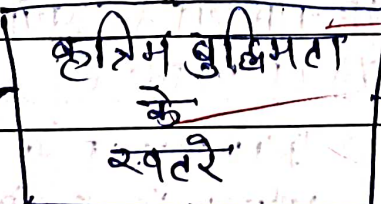 कृत्रिम बुद्धिमता
के
खतरे